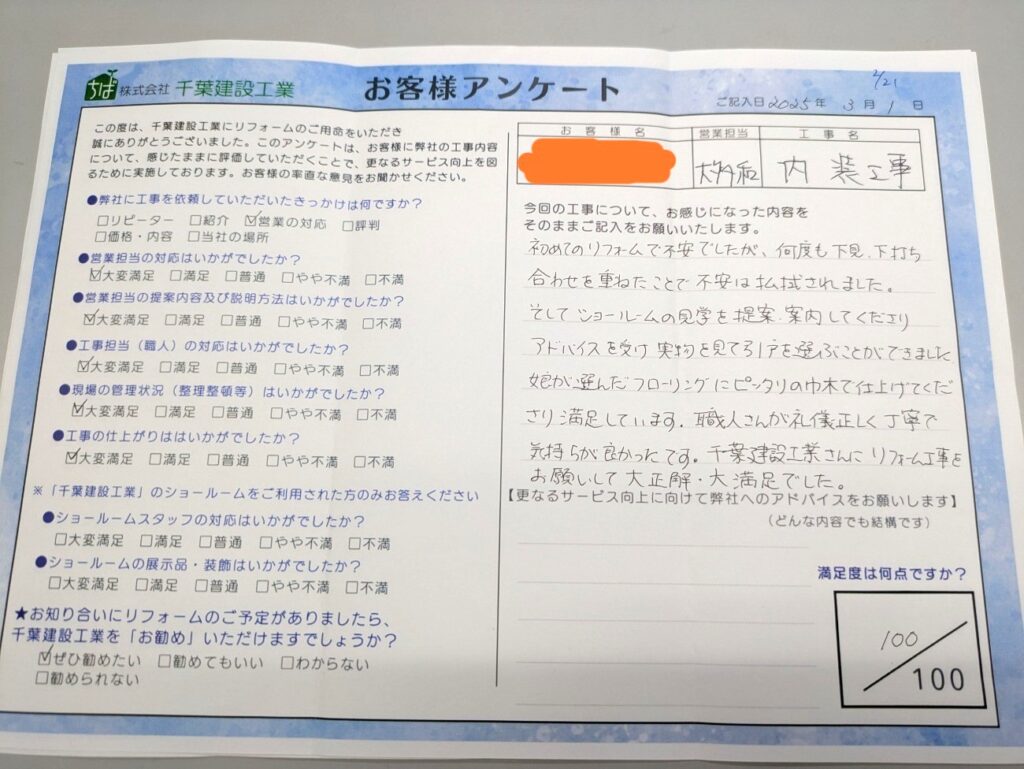 ちば 株式会社 千葉建設工業
お客様アンケート
2/21
ご記入日 2025年 3月 1日
この度は、千葉建設工業にリフォームのご用命をいただき
誠にありがとうございました。このアンケートは、お客様に弊社の工事内容
について、感じたままに評価していただくことで、更なるサービス向上を図
るために実施しております。お客様の率直な意見をお聞かせください。
●弊社に工事を依頼していただいたきっかけは何ですか?
□リピーター □紹介 ☑営業の対応 □評判
□価格・内容 □当社の場所
●営業担当の対応はいかがでしたか?
☑大変満足 □満足 □普通 □やや不満 □不満
●営業担当の提案内容及び説明方法はいかがでしたか?
☑大変満足 □満足 □普通 □やや不満 □不満
●工事担当(職人)の対応はいかがでしたか?
☑大変満足 □満足 □普通 □やや不満 □不満
●現場の管理状況(整理整頓等)はいかがでしたか?
☑大変満足 □満足 □普通 □やや不満 □不満
●工事の仕上がりははいかがでしたか?
☑大変満足 □満足 □普通 □やや不満 □不満
※「千葉建設工業」のショールームをご利用された方のみお答えください
●ショールームスタッフの対応はいかがでしたか?
□大変満足 □満足 □普通 □やや不満 □不満
●ショールームの展示品・装飾はいかがでしたか?
□大変満足 □満足 □普通 □やや不満 □不満
★お知り合いにリフォームのご予定がありましたら、
千葉建設工業を「お勧め」いただけますでしょうか?
☑ぜひ勧めたい □勧めてもいい □わからない
□勧められない
お客様名 営業担当 工事名
内装工事
今回の工事について、お感じになった内容を
そのままご記入をお願いいたします。
初めてのリフォームで不安でしたが、何度も下見、下打ち
合わせを重ねたことで不安は払拭されました。
そしてショールームの見学を提案.案内してくださり
アドバイスを受け実物を見て引戸を選ぶことができました
娘が選んだフローリングにピッタリの巾木で仕上げてくだ
さり満足しています。職人さんが礼儀正しく丁寧で
気持ちが良かったです。千葉建設工業さんにリフォーム工事を
お願いして大正解・大満足でした。
【更なるサービス向上に向けて弊社へのアドバイスをお願いします】
(どんな内容でも結構です)
満足度は何点ですか?
100/100